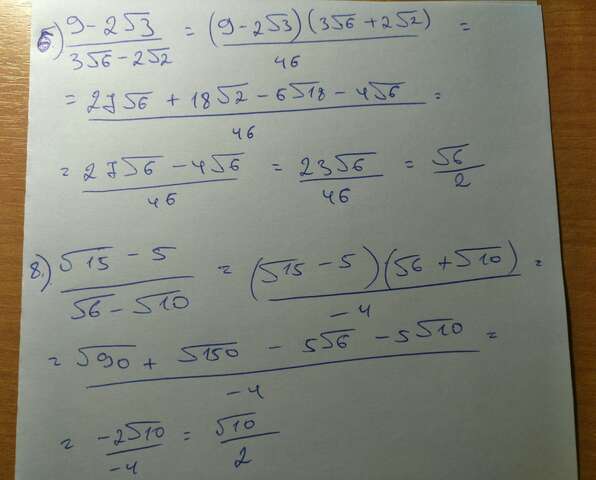 б) (9 - 2√3)/(3√6 - 2√2) = ((9 - 2√3)(3√6 + 2√2))/46 =
= (27√6 + 18√2 - 6√18 - 4√6)/46 =
= (27√6 - 4√6)/46 = 23√6/46 = √6/2
8.) (√15 - 5)/(√6 - √10) = ((√15 - 5)(√6 + √10))/-4 =
= (√90 + √150 - 5√6 - 5√10)/-4 =
= -2√10/-4 = √10/2